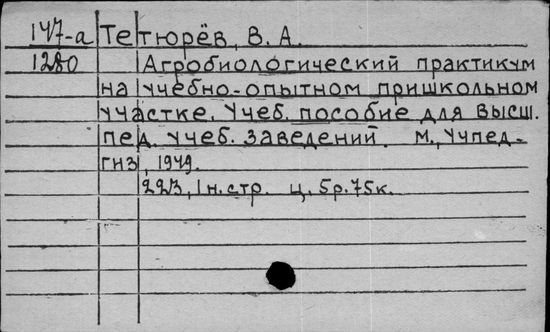 147-а Тетюрёв, В. А.
1280 Агробиологический практикум
на учебно-опытном пришкольном
участке. Учеб. пособие для высш.
пед. учеб. заведений. М., Учпед-
гиз, 1949.
223, 1 н. стр. ц. 5р. 75к.